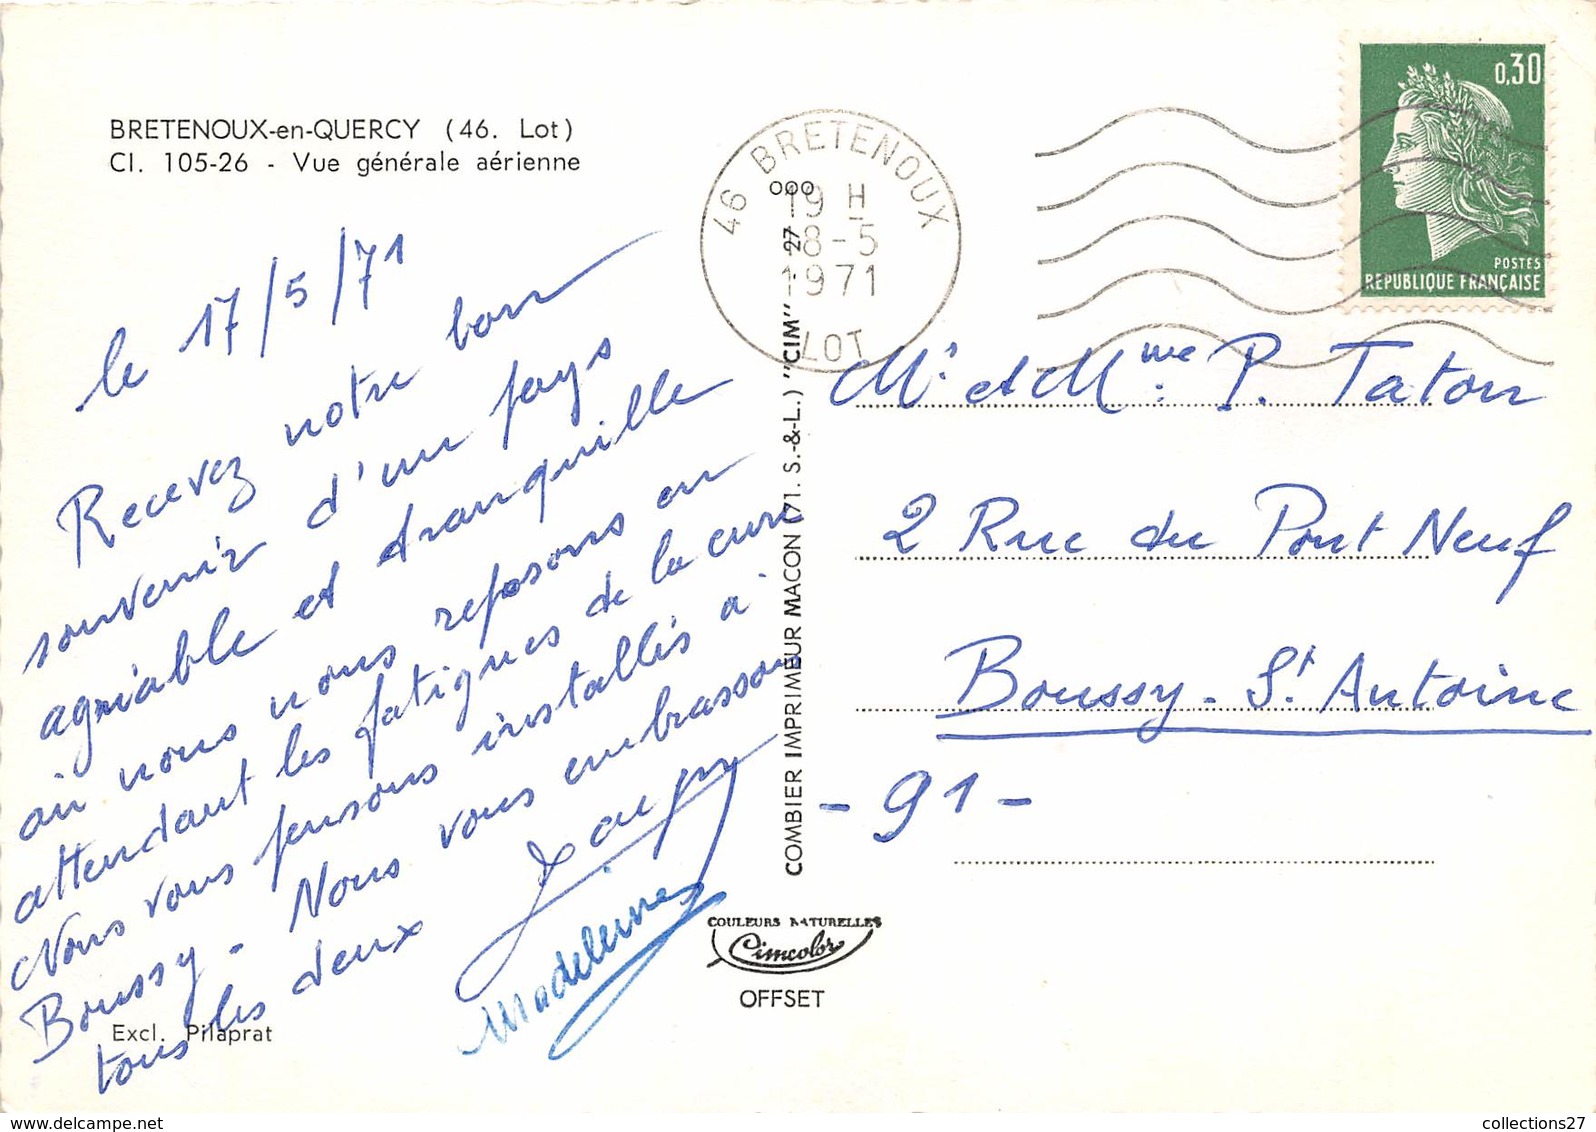 BRETENOUX-en-QUERCY (46. Lot)
CI. 105-26 - Vue générale aérienne
le 17/5/71
Recevez notre bon
souvenir d'un pays
agréable et tranquille
où nous nous reposons en
attendant les fatigues de la cure
Nous vous pensons installés à
Boussy - Nous vous embrassons
tous les deux
Madeleine
Excl. Pilaprat
46 BRETENOUX
19 H
18-5
1971
LOT
0,30
POSTES
REPUBLIQUE FRANÇAISE
COMBIER IMPRIMEUR MACON (71. S.-&-L.) "CIM" - 27
Mr et Mme P. Taton
2 Rue du Pont Neuf
Boussy - St Antoine
- 91 -
COULEURS NATURELLES
Cimcolor
OFFSET
collections27